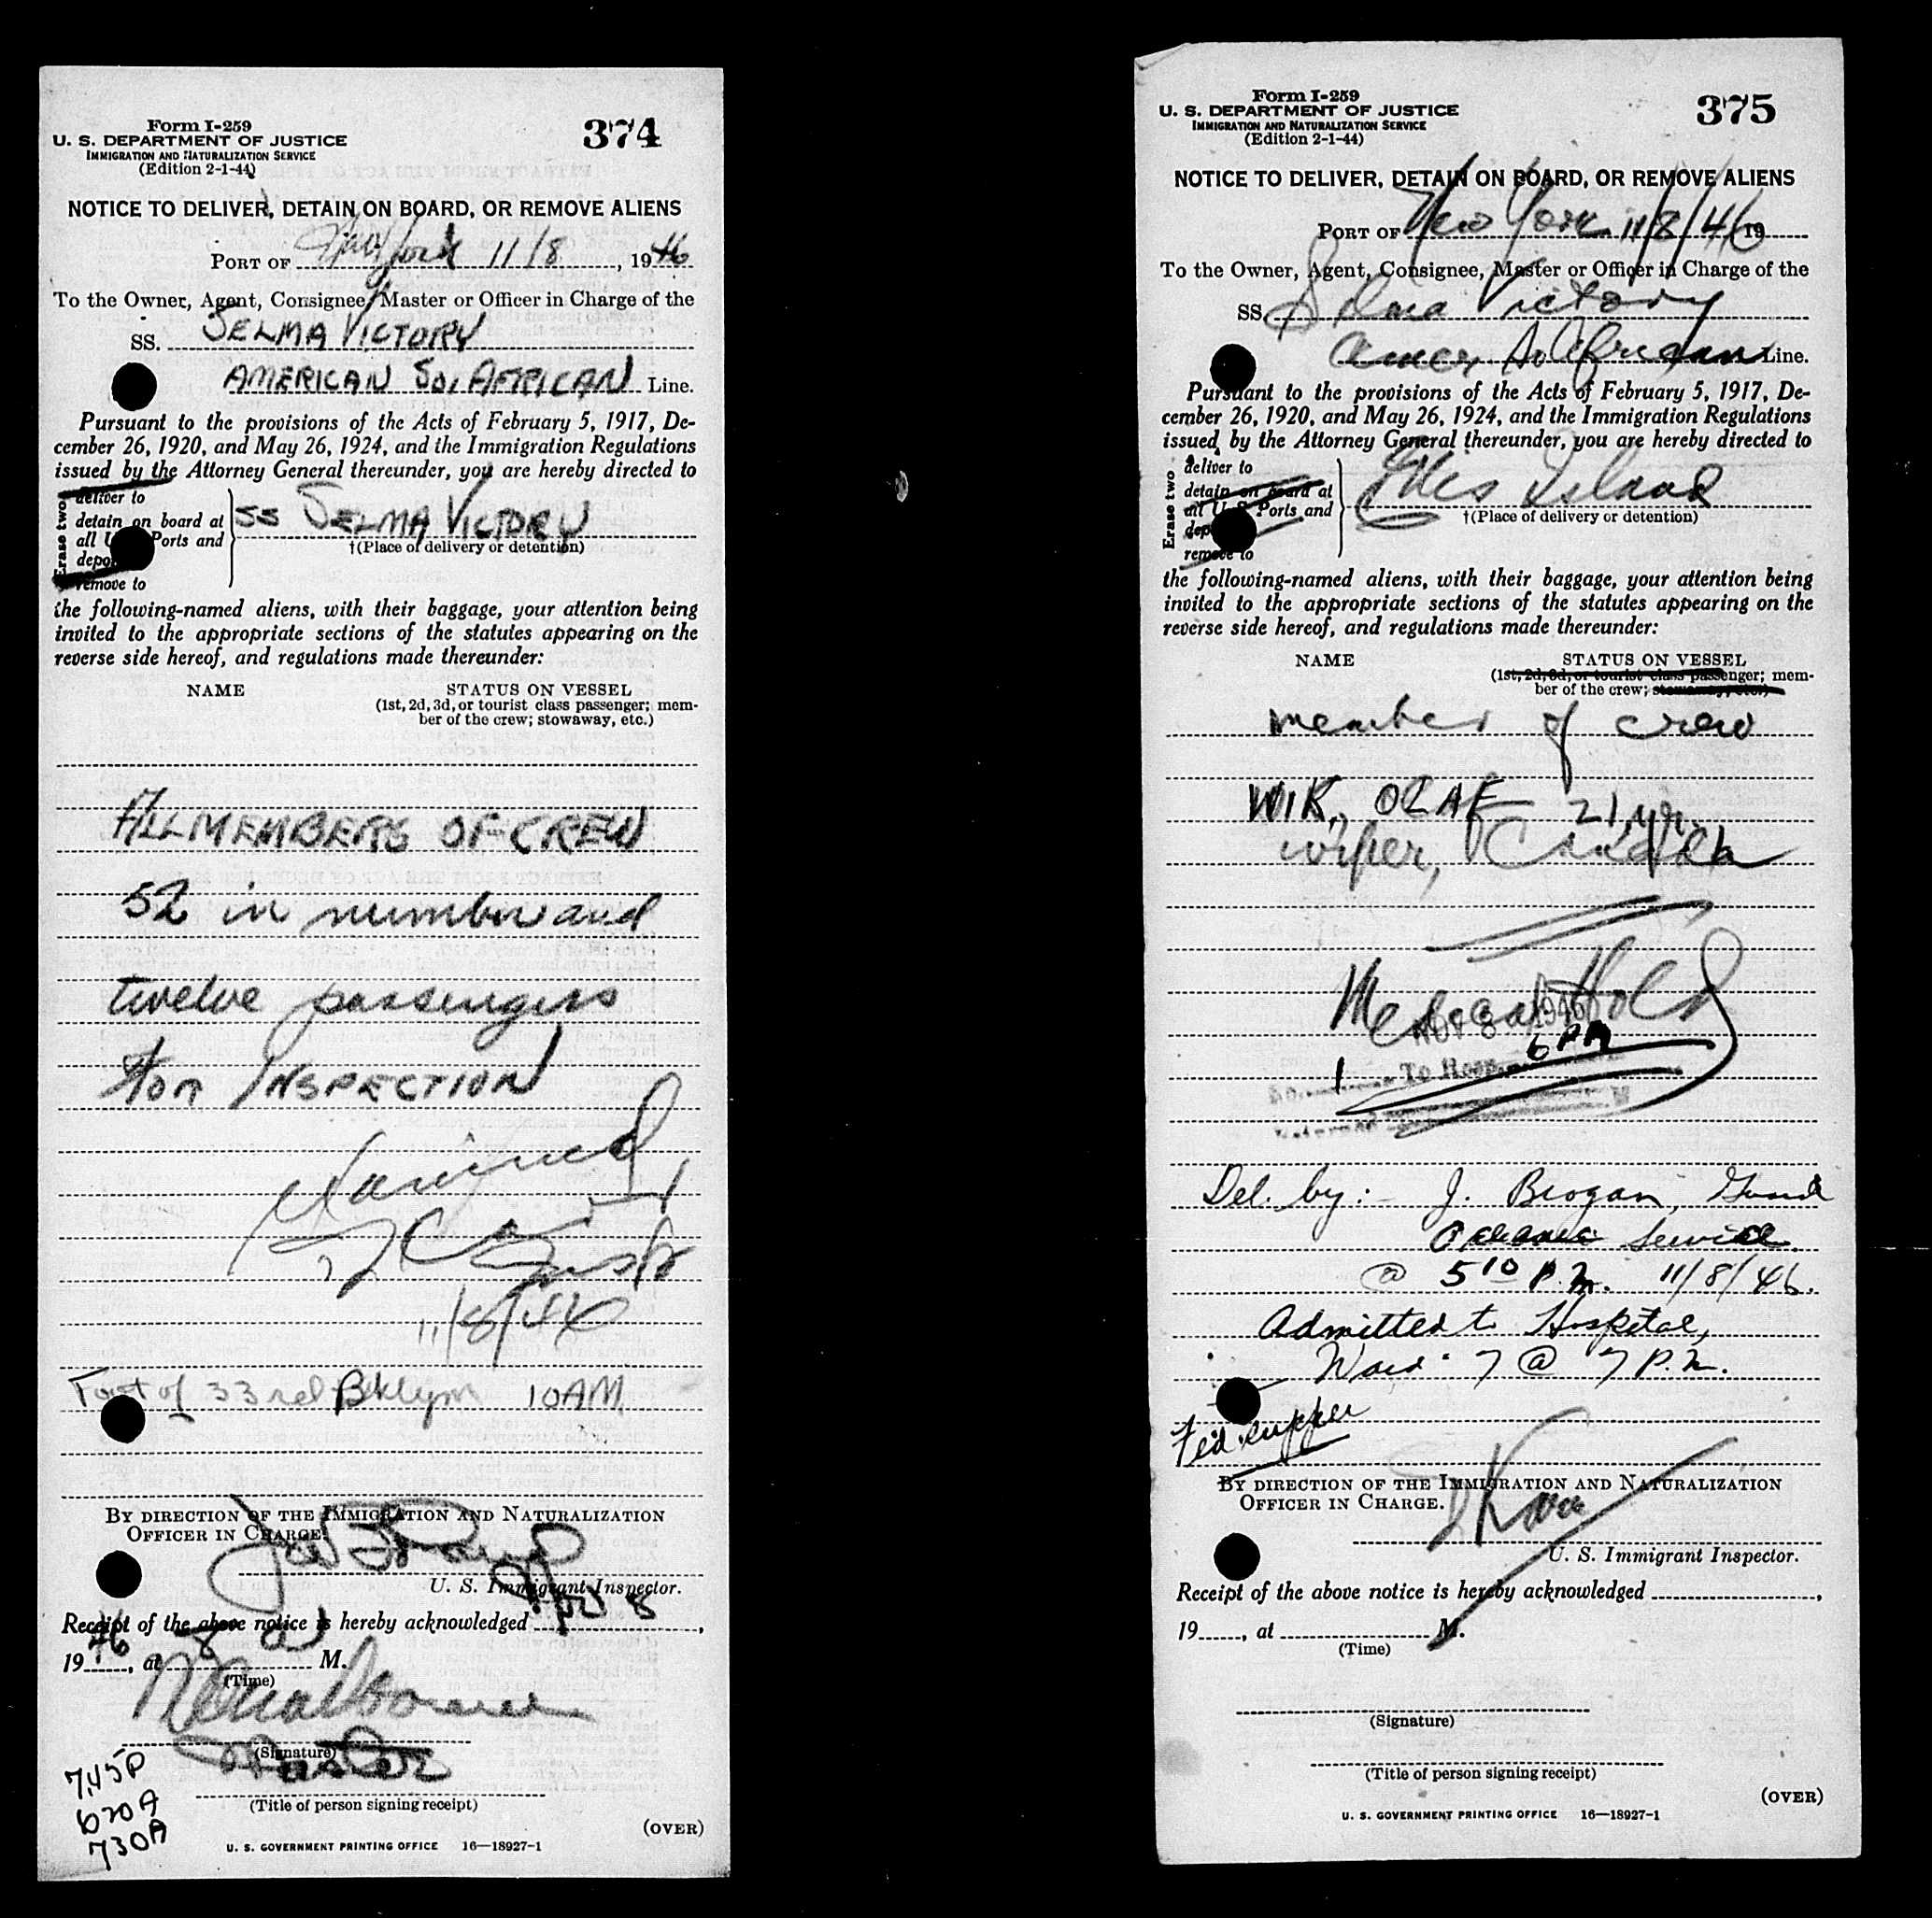 Form I-259
U. S. DEPARTMENT OF JUSTICE
IMMIGRATION AND NATURALIZATION SERVICE
(Edition 2-1-44)
374
NOTICE TO DELIVER, DETAIN ON BOARD, OR REMOVE ALIENS
PORT OF New York 11/8, 1946
To the Owner, Agent, Consignee, Master or Officer in Charge of the
SS. SELMA VICTORY
AMERICAN SO. AFRICAN Line.
Pursuant to the provisions of the Acts of February 5, 1917, De-
cember 26, 1920, and May 26, 1924, and the Immigration Regulations
issued by the Attorney General thereunder, you are hereby directed to
Erase two
deliver to
detain on board at
all U Ports and
depo
remove to
SS SELMA VICTORY
†(Place of delivery or detention)
the following-named aliens, with their baggage, your attention being
invited to the appropriate sections of the statutes appearing on the
reverse side hereof, and regulations made thereunder:
NAME STATUS ON VESSEL
(1st, 2d, 3d, or tourist class passenger; mem-
ber of the crew; stowaway, etc.)
ALL MEMBERS OF CREW
52 in number and
twelve passengers
FOR INSPECTION
11/8/46
Foot of 33rd Bklyn 10AM
BY DIRECTION OF THE IMMIGRATION AND NATURALIZATION
OFFICER IN CHARGE.
U. S. Immigrant Inspector.
Receipt of the above notice is hereby acknowledged Nov 8,
1946, at 8 a M.
(Time)
(Signature)
Master
(Title of person signing receipt)
745P
620A
730A
(OVER)
U. S. GOVERNMENT PRINTING OFFICE 16—18927-1
Form I-259
U. S. DEPARTMENT OF JUSTICE
IMMIGRATION AND NATURALIZATION SERVICE
(Edition 2-1-44)
375
NOTICE TO DELIVER, DETAIN ON BOARD, OR REMOVE ALIENS
PORT OF New York 11/8/46 19
To the Owner, Agent, Consignee, Master or Officer in Charge of the
SS. Selma Victory
Amer So African Line.
Pursuant to the provisions of the Acts of February 5, 1917, De-
cember 26, 1920, and May 26, 1924, and the Immigration Regulations
issued by the Attorney General thereunder, you are hereby directed to
Erase two
deliver to
detain on board at
all U S Ports and
dep
remove to
Ellis Island
†(Place of delivery or detention)
the following-named aliens, with their baggage, your attention being
invited to the appropriate sections of the statutes appearing on the
reverse side hereof, and regulations made thereunder:
NAME STATUS ON VESSEL
(1st, 2d, 3d, or tourist class passenger; mem-
ber of the crew; stowaway, etc.)
member of crew
WIK, OLAF 21 yr.
wiper, Canada
Medical Hold
NOV 8 1946
6 PM
1 To Hosp.
Del. by:- J. Brogan, Guard
Service
@ 5 10 P.M. 11/8/46.
Admitted to Hospital,
Ward 7 @ 7 P.M.
Fed supper
BY DIRECTION OF THE IMMIGRATION AND NATURALIZATION
OFFICER IN CHARGE.
U. S. Immigrant Inspector.
Receipt of the above notice is hereby acknowledged ,
19 , at M.
(Time)
(Signature)
(Title of person signing receipt)
(OVER)
U. S. GOVERNMENT PRINTING OFFICE 16—18927-1